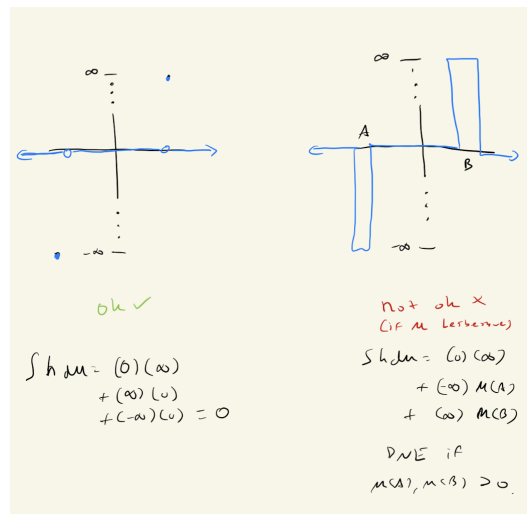 ∞
-∞
ok ✓
∫ h dμ = (0)(∞)
+ (∞)(0)
+ (-∞)(0) = 0
∞
A
B
-∞
not ok ×
(if μ Lebesgue)
∫ h dμ = (0)(∞)
+ (-∞) μ(A)
+ (∞) μ(B)
DNE if
μ(A), μ(B) > 0.